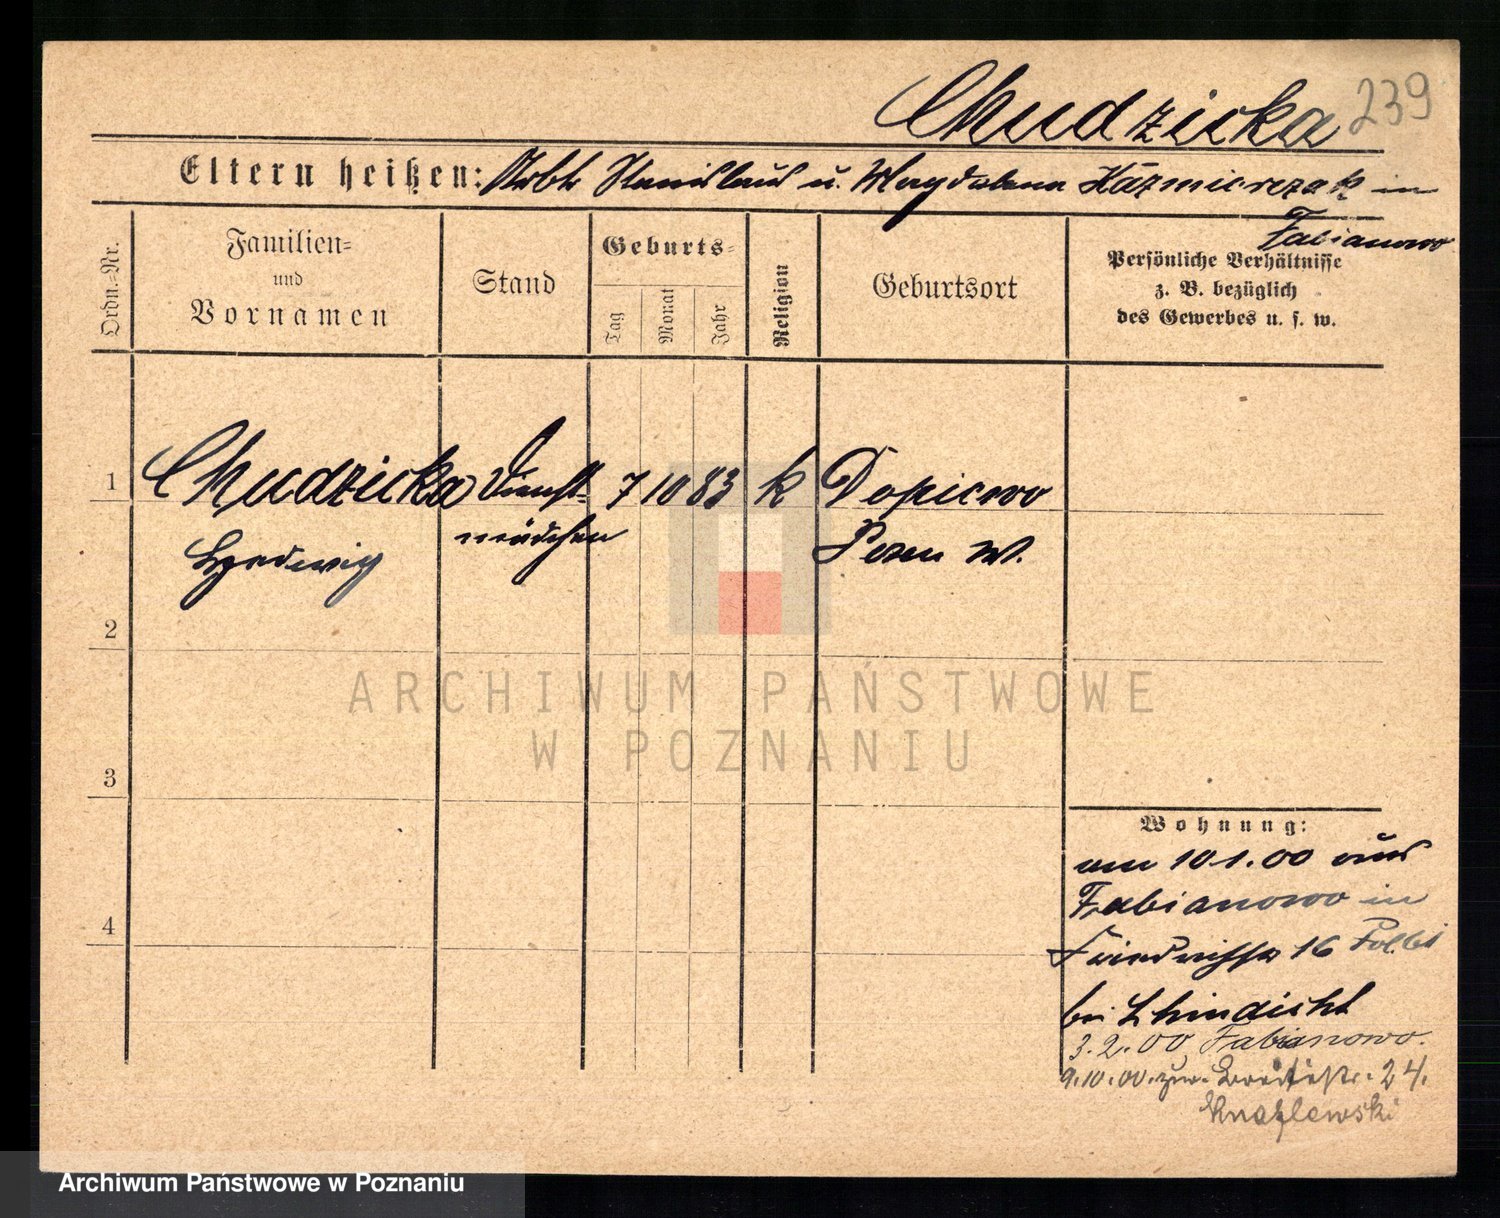 Chudzicka 239
Eltern heißen: Arbtr Stanislaus u. Magdalena Kaźmierczak in
Fabianowo
Ordn.-Nr.
Familien-
und
Vornamen
Stand
Geburts-
Tag
Monat
Jahr
Religion
Geburtsort
Persönliche Verhältnisse
z. B. bezüglich
des Gewerbes u. s. w.
1 Chudzicka Dienst- 7 10 83 k Dopiewo
Hedwig mädchen Posen W.
2
3
4
Wohnung:
am 10 1.00 aus
Fabianowo in
Friedrichstr 16
bei
3.2.00 Fabianowo.
9.10.00. zur. Breitestr. 24.
ARCHIWUM PAŃSTWOWE
W POZNANIU
Archiwum Państwowe w Poznaniu